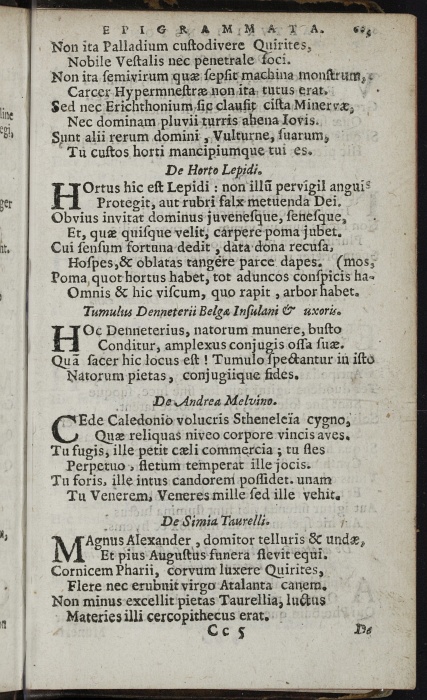 EPIGRAMMATA.
Non ita Palladium custodivere Quirites,
Nobile Vestalis nec penetrale foci.
Non ita semivirum quæ sepsit machina monstrum,
Carcer Hypermnestræ non ita tutus erat.
Sed nec Erichthonium sic clausit cista Minervæ,
Nec dominam pluvii turris ahena Iovis.
Sunt alii rerum domini, Vulturne, suarum,
Tu custos horti mancipiumque tui es.
De Horto Lepidi.
HOrtus hic est Lepidi: non illū pervigil anguis
Protegit, aut rubri falx metuenda Dei.
Obvius invitat dominus juvenesque, senesque,
Et, quæ quisque velit, carpere poma jubet.
Cui sensum fortuna dedit, data dona recusa,
Hospes, & oblatas tangere parce dapes. (mos,
Poma quot hortus habet, tot aduncos conspicis ha-
Omnis & hic viscum, quo rapit, arbor habet.
Tumulus Denneterii Belgæ Insulani & uxoris.
HOc Denneterius, natorum munere, busto
Conditur, amplexus conjugis ossa suæ.
Quā sacer hic locus est! Tumulo spectantur in isto
Natorum pietas, conjugiique fides.
De Andrea Melvino.
CEde Caledonio volucris Stheneleïa cygno,
Quæ reliquas niveo corpore vincis aves.
Tu fugis, ille petit cæli commercia; tu fles
Perpetuo, fletum temperat ille jocis.
Tu foris, ille intus candorem possidet. unam
Tu Venerem, Veneres mille sed ille vehit.
De Simia Taurelli.
MAgnus Alexander, domitor telluris & undæ,
Et pius Augustus funera flevit equi.
Cornicem Pharii, corvum luxere Quirites,
Flere nec erubuit virgo Atalanta canem.
Non minus excellit pietas Taurellia, luctus
Materies illi cercopithecus erat.
Cc 5
De